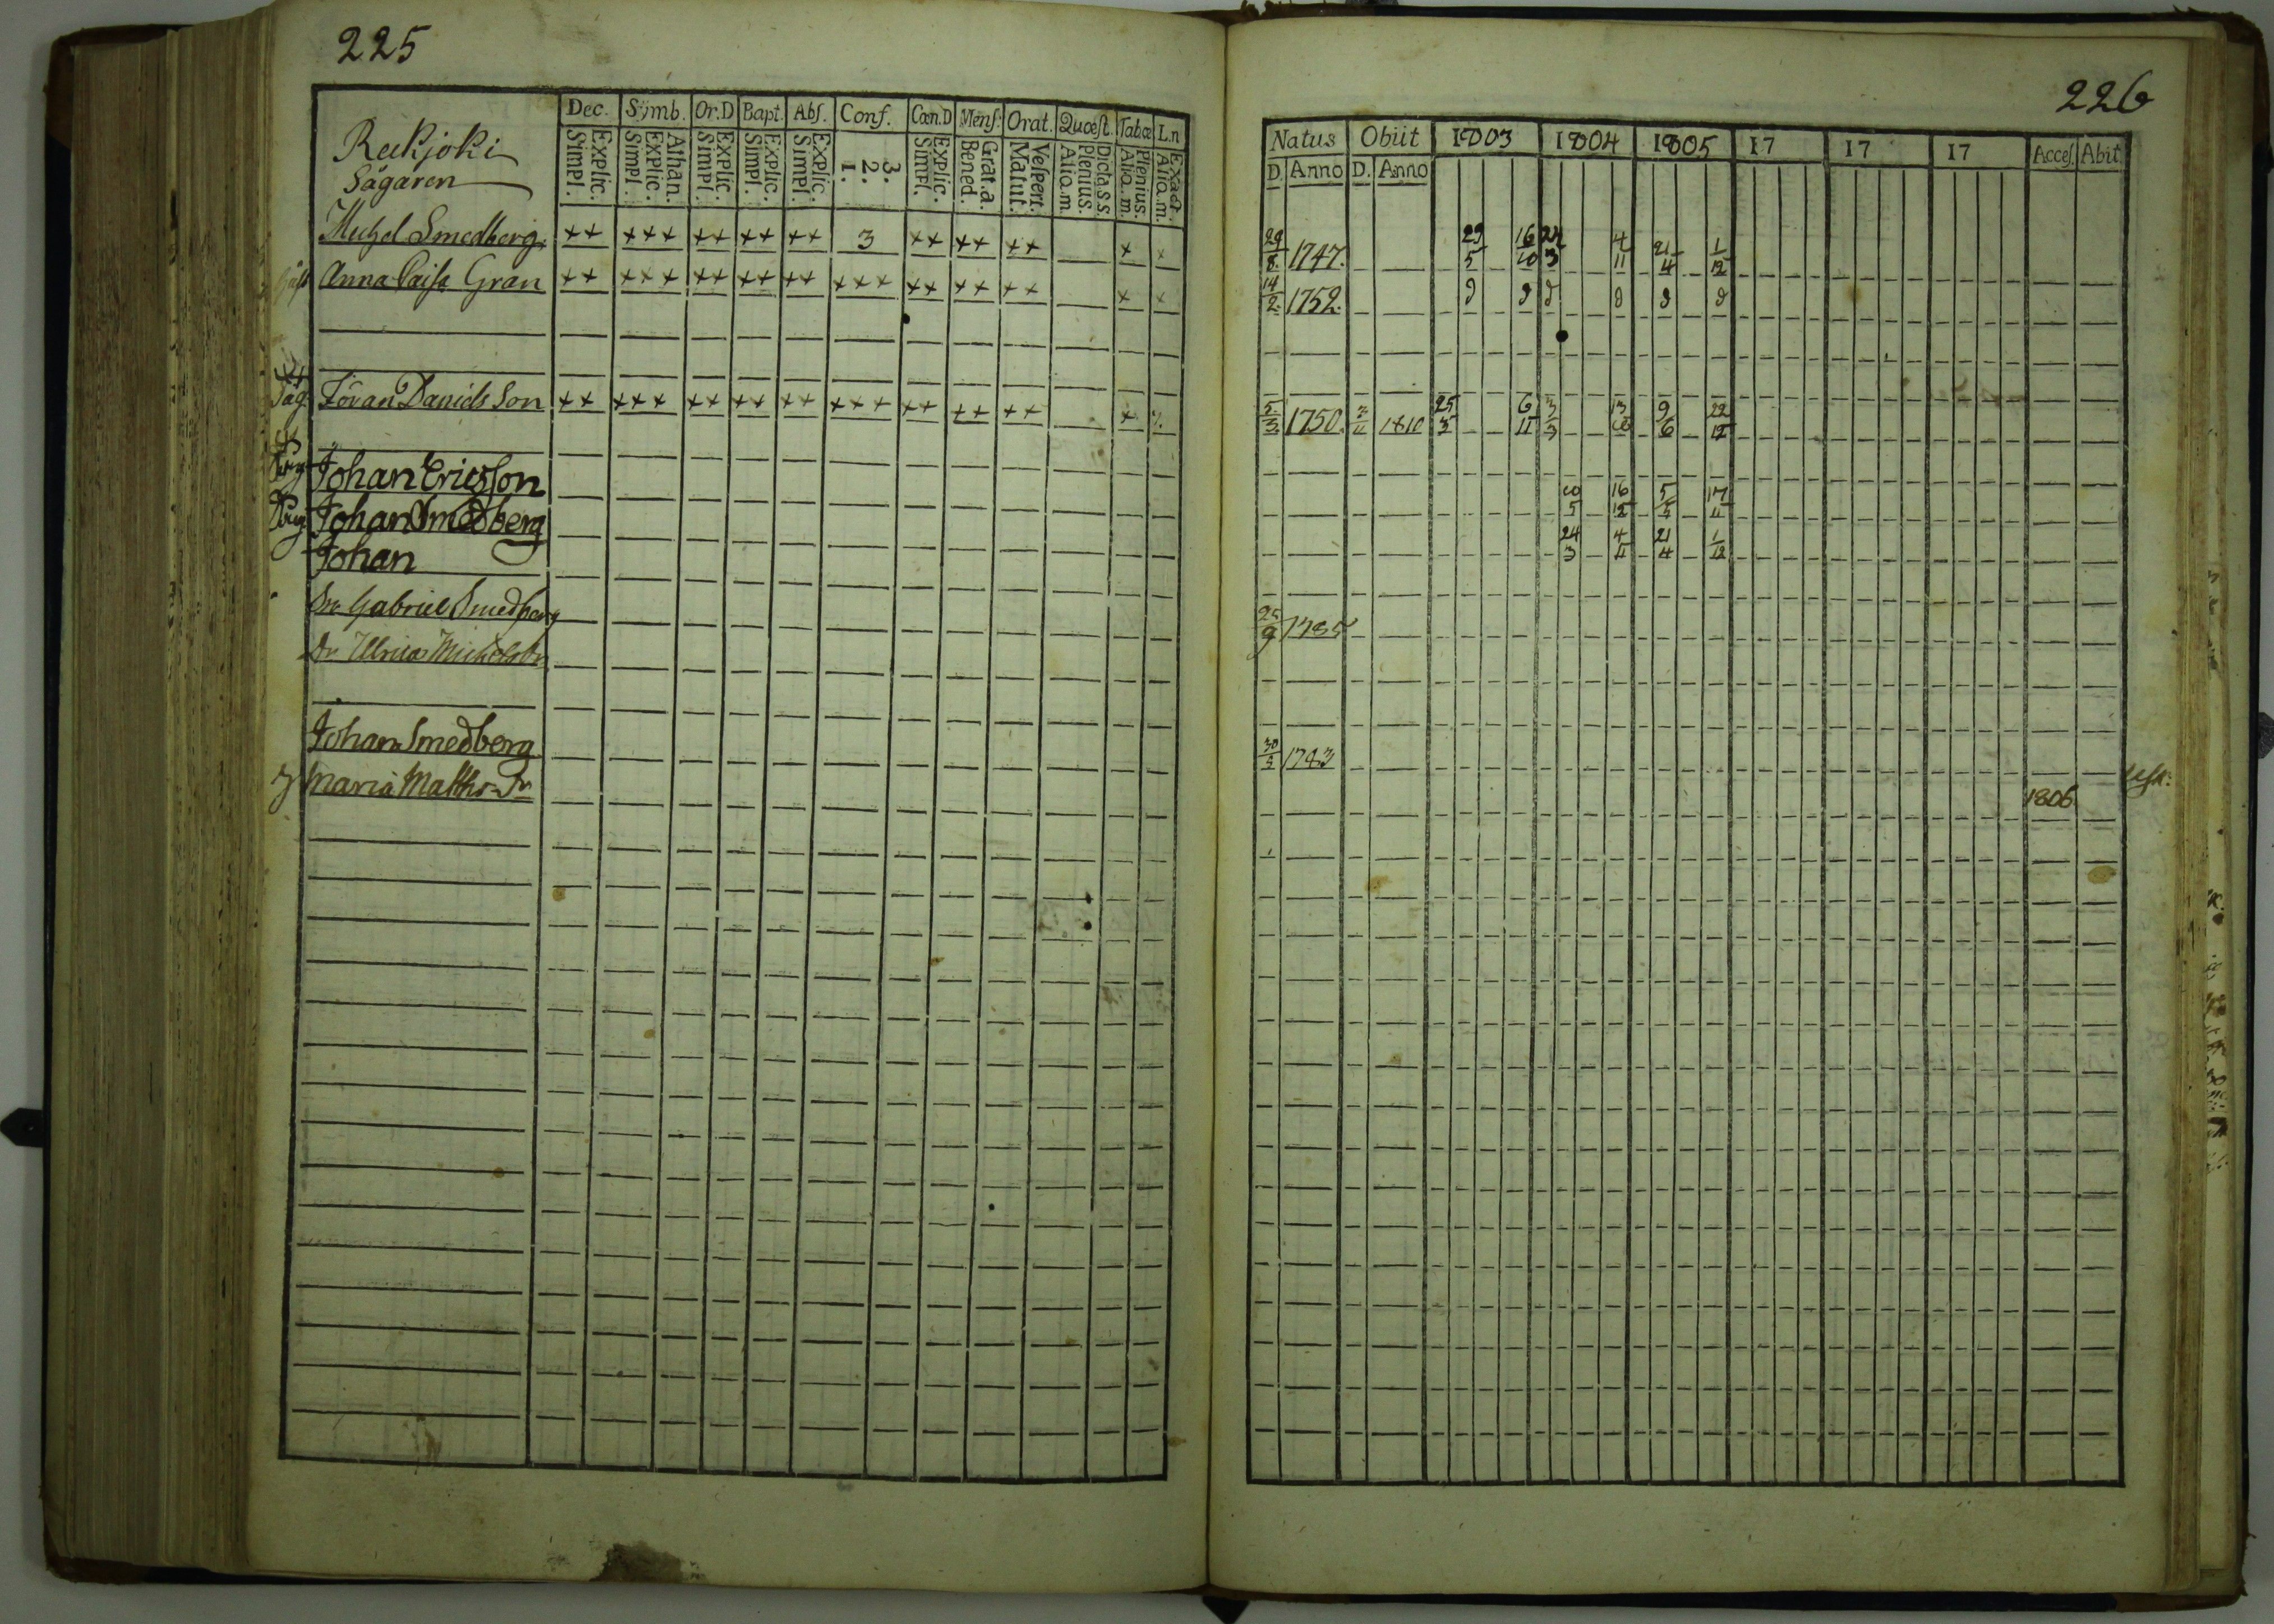 225
Dec. Symb. Or.D Bapt. Abs. Conf. Cæn.D Mens. Orat. Quæst. Tabæ L.n
Explic. Simpl. Athan. Explic. Simpl. Explic. Simpl. Explic. Simpl. Explic. Simpl. 3. 2. 1. Explic. Simpl. Grat.a. Bened. Vespert. Matut. Dicta.S.S. Plenius. Aliq.m. Plenius. Aliq.m. Exact. Aliq.m.
Reekjoki
Sågaren
Michel Smedberg ++ +++ ++ ++ ++ 3 ++ ++ ++ + +
Anna Caisa Gran ++ +++ ++ ++ ++ +++ ++ ++ ++ + +
Såg Jöran Daniels Son ++ +++ ++ ++ ++ +++ ++ ++ ++ +
Johan Ericsson
Johan Smedberg
Johan
Sn Gabriel Smedberg
Dr Ulrica Michelsdr
Johan Smedberg
Maria Matths Dr
226
Natus Obiit 1803 1804 1805 17 17 17 Acces. Abit.
D. Anno D. Anno
29/8 1747. 29/5 16/10 24/3 4/11 21/4 1/12
14/2 1752.
5/3 1750. 3/11 1810 25/3 6/11 3/3 13/10 9/6 22/12
10/5 16/12 5/5 17/11
24/3 4/11 21/4 1/12
25/9 1785
30/5 1783
1806